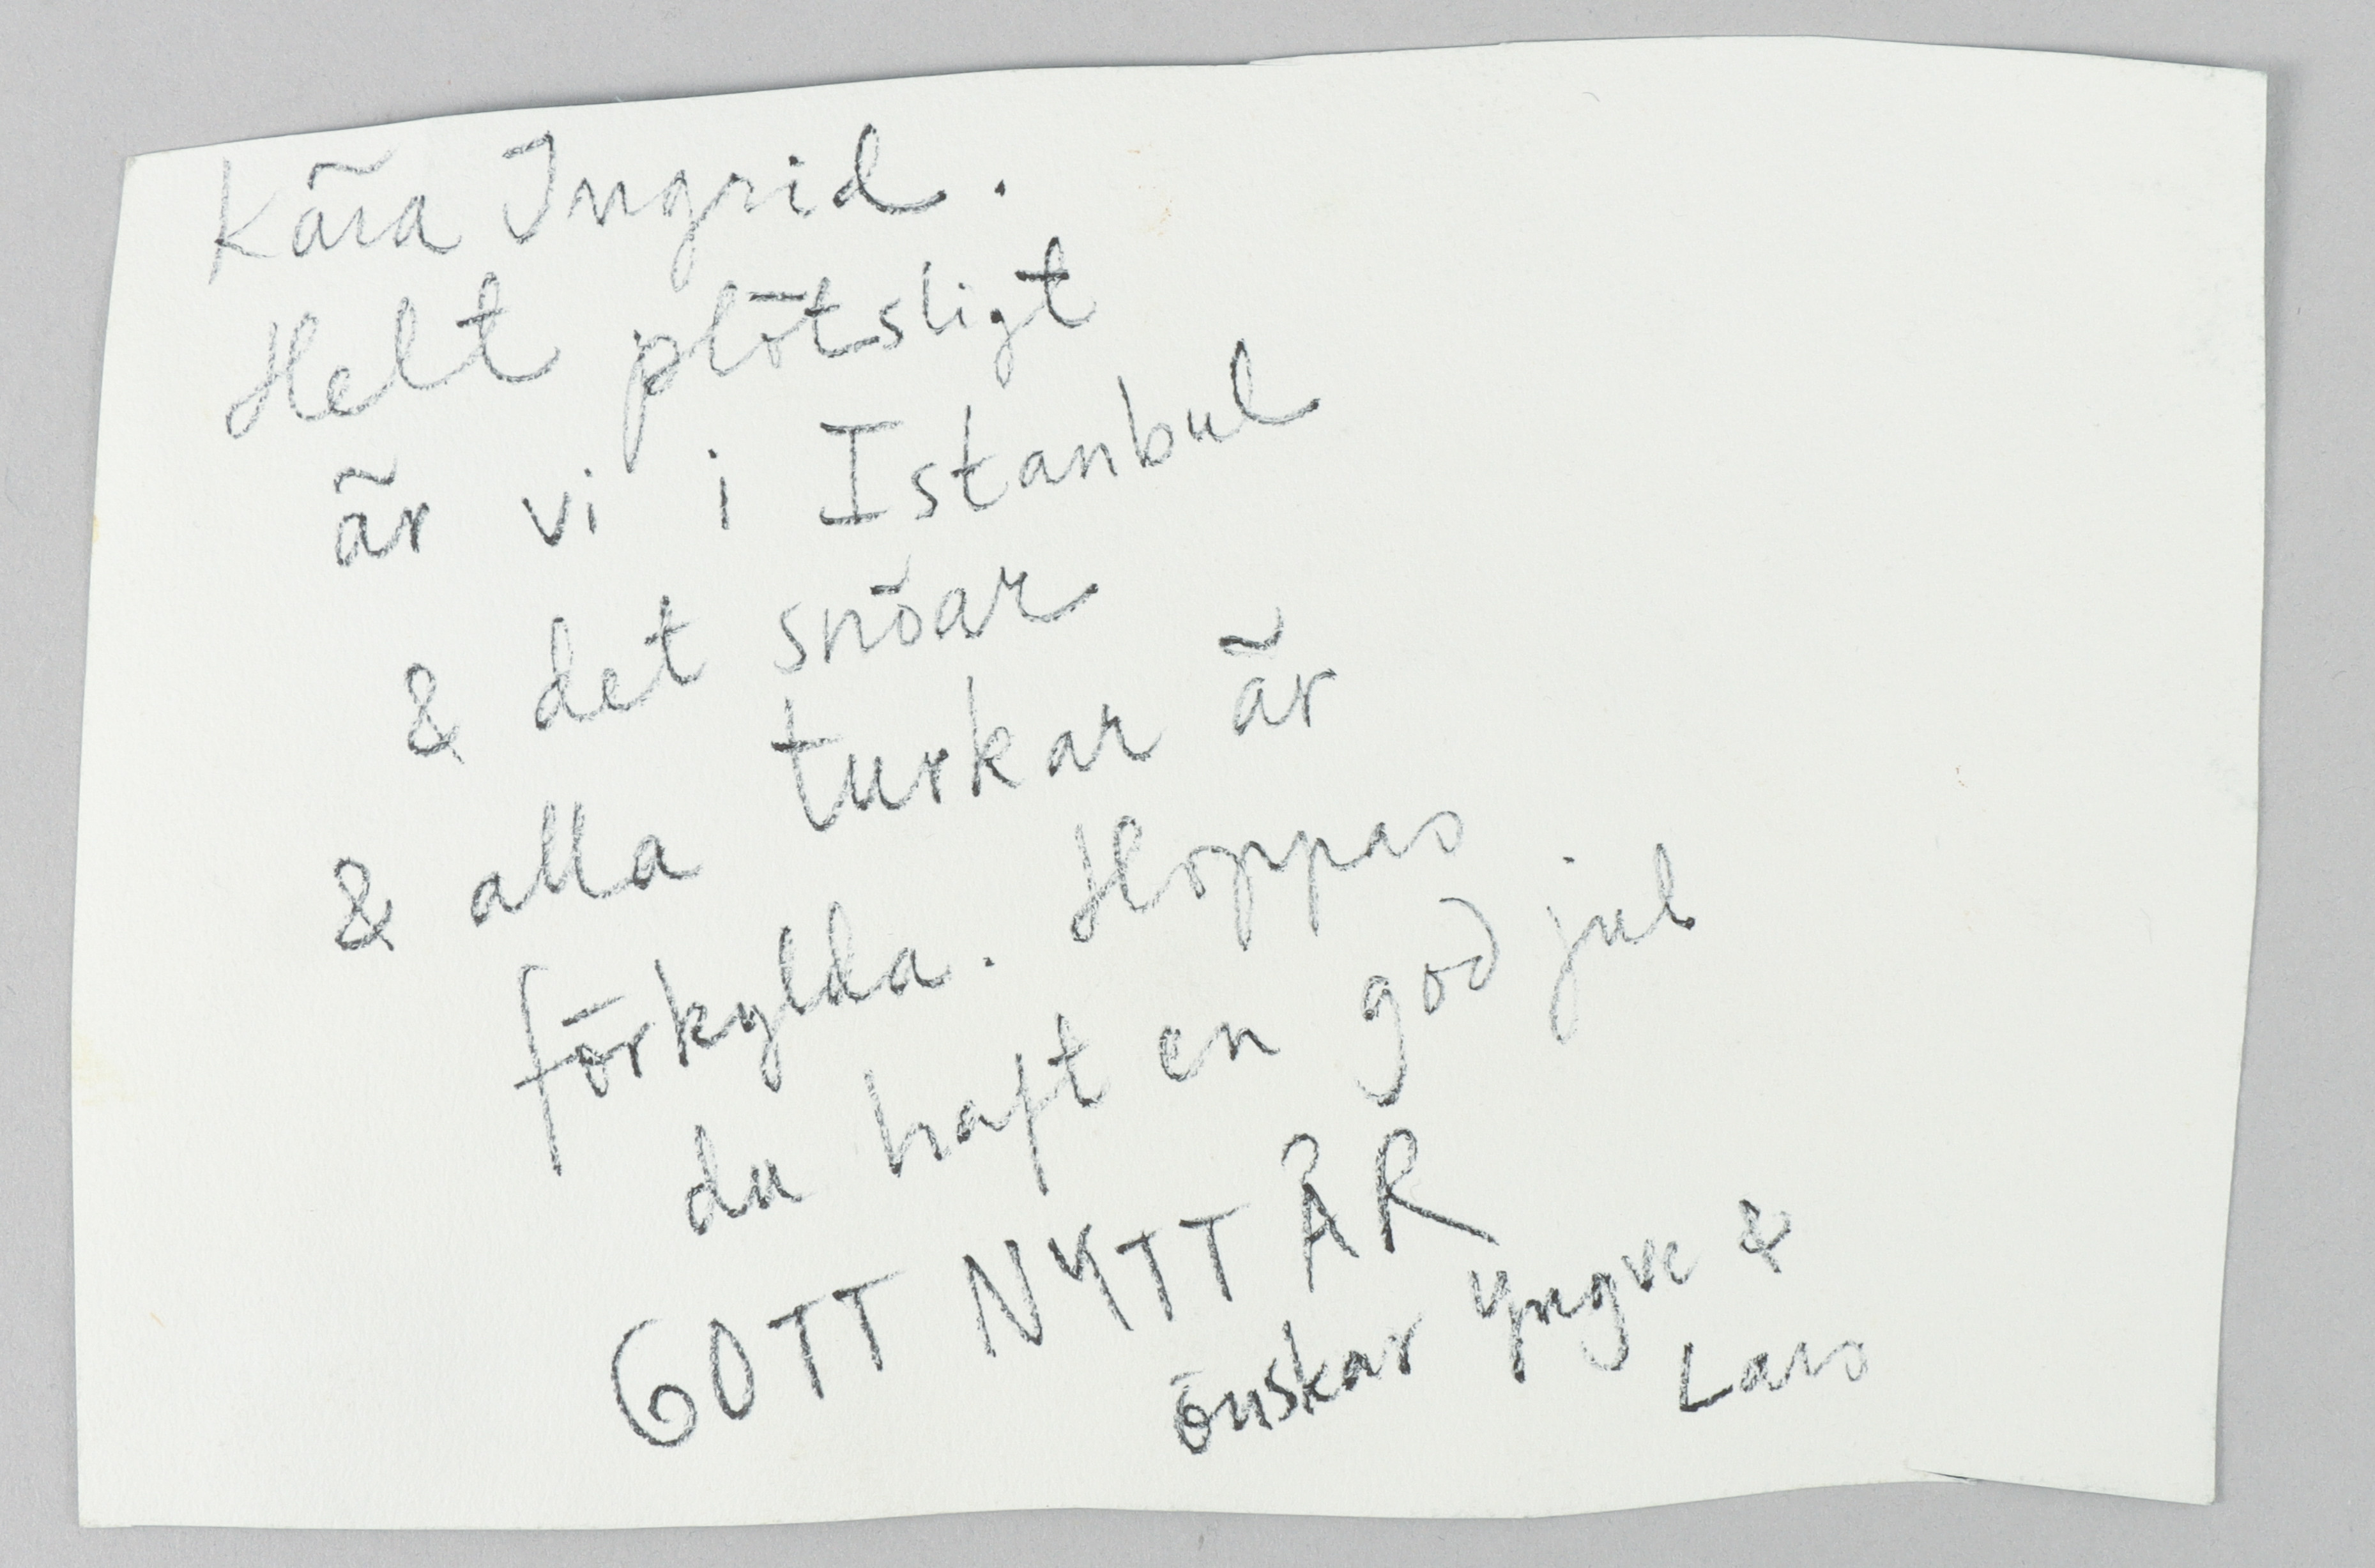 Kära Ingrid.
Helt plötsligt
är vi i Istanbul
& det snöar
& alla turkar är
förkylda. Hoppas
du haft en god jul
GOTT NYTT ÅR
önskar Yngve &
Lars